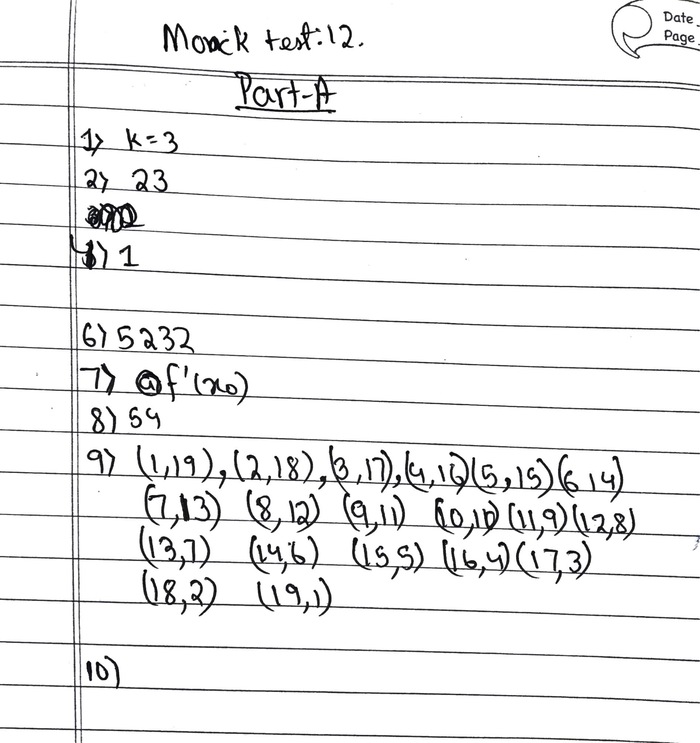 Date
Page
Mock test:12.
Part-A
1) K=3
2) 23
4) 1
6) 5232
7) f'(x0)
8) 54
9) (1,19), (2,18), (3,17), (4,16) (5,15) (6 14)
(7,13) (8,12) (9,11) (10,10) (11,9) (12,8)
(13,7) (14,6) (15,5) (16,4) (17,3)
(18,2) (19,1)
10)